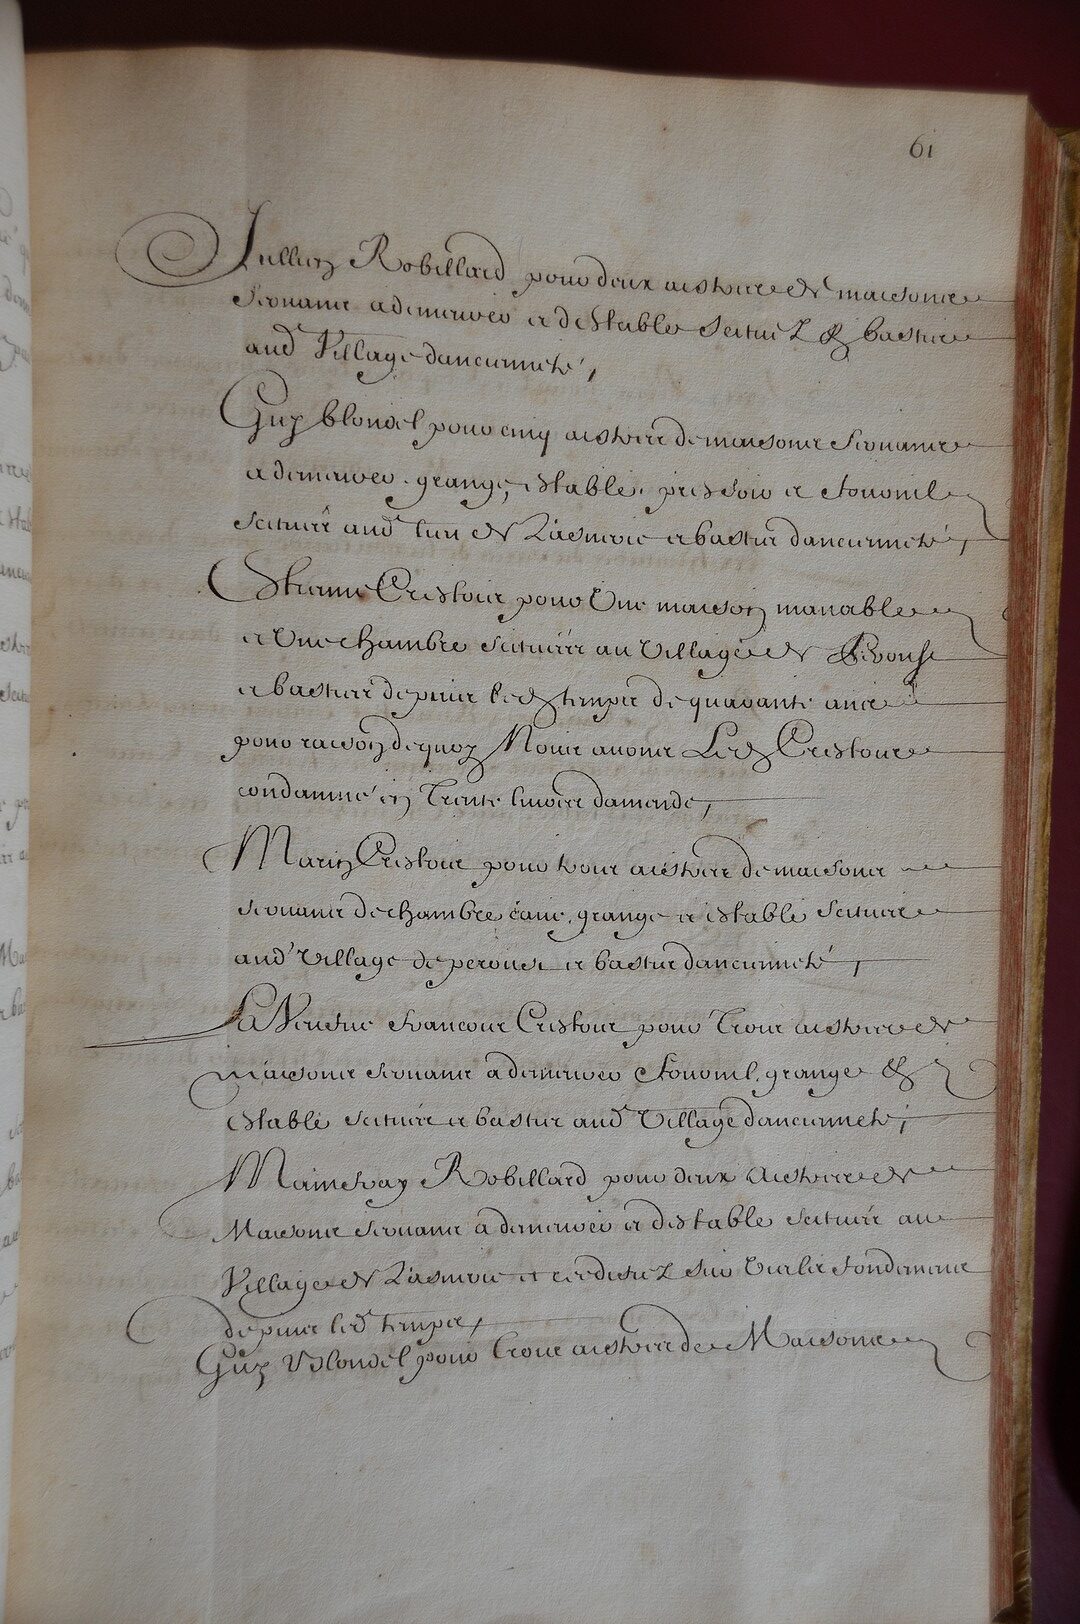 61
Jullien Robillard pour deux aistres de maisons
servans a demeurer et destable scituez & bastis
aud Village dancienneté,
Guy blondel pour cinq aistres de maisons servans
a demeurer, grange, estable, pressoir et fournil
scituées aud lieu de et basties dancienneté,
Estienne pour Une maison manable
et Une chambre scituées au Village de
et basties depuis led temps de quarante ans
pour raison de quoy Nous avons Led
condamné en Trente livres damende,
Marin pour trois aistres de maisons
servans de chambre cave, grange et estable scituées
aud Village de perouse et bastis dancienneté,
La Veufve francois pour Trois aistres de
maisons servans a demeurer fournil, grange &
Estable scituées et basties aud Village dancienneté,
Robillard pour deux Aistres de
Maisons servans a demeurer et destable scituées au
Village de et reediffiez sur Vielles fondemens
depuis led temps,
Guy Blondel pour Trois aistres de Maisons